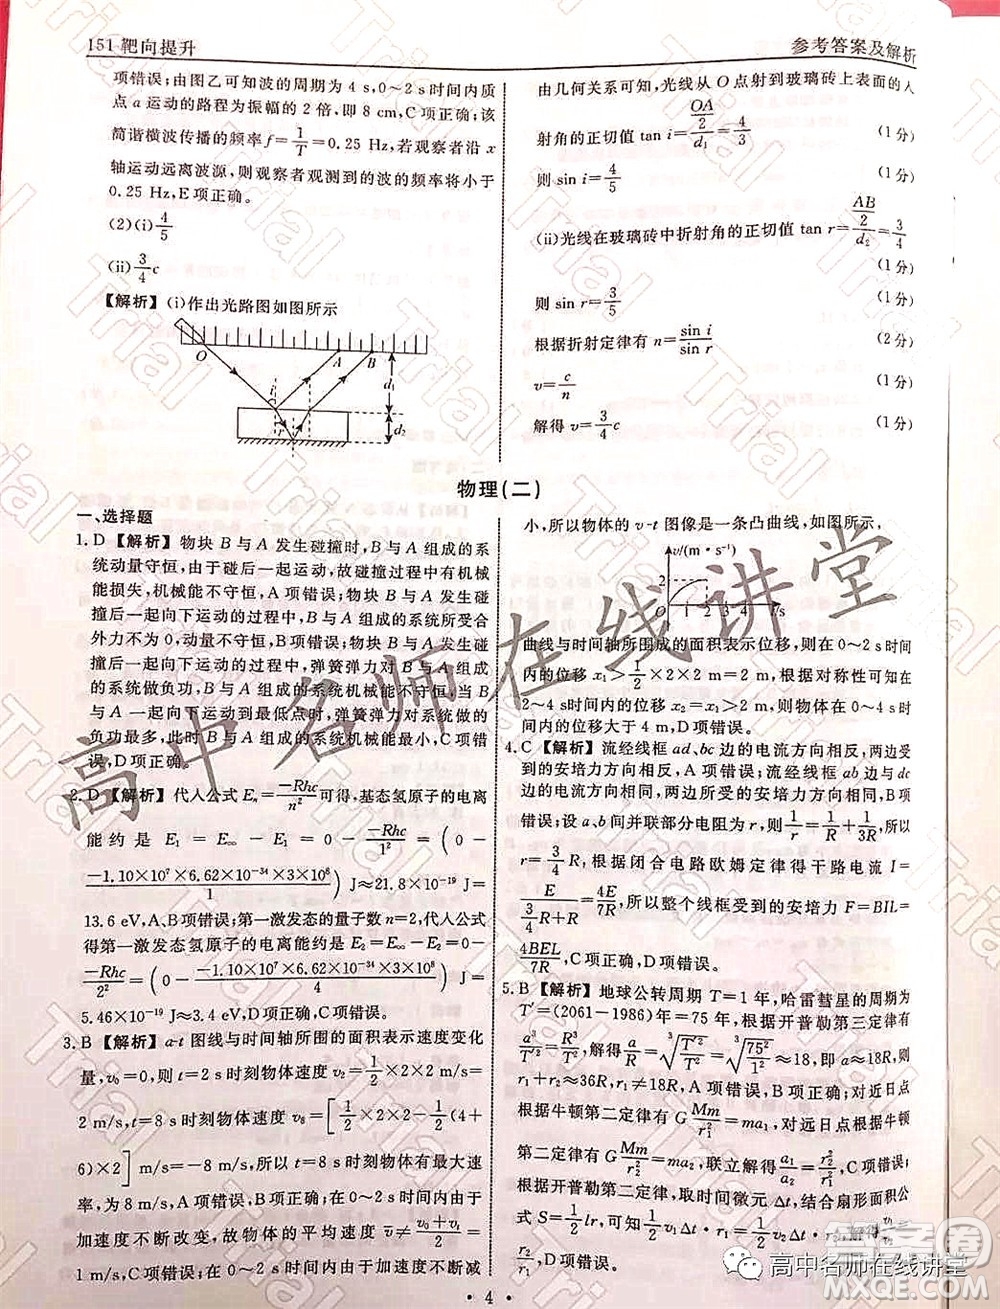 151靶向提升
参考答案及解析
项错误;由图乙可知波的周期为 4 s,0～2 s时间内质
点 a 运动的路程为振幅的 2 倍,即 8 cm,C项正确;该
简谐横波传播的频率 f=1/T=0.25 Hz,若观察者沿 x
轴运动远离波源,则观察者观测到的波的频率将小于
0.25 Hz,E项正确。
(2)(i) 4/5
(ii) 3/4 c
【解析】(i)作出光路图如图所示
O
A
B
i
r
d₁
d₂
由几何关系可知,光线从 O 点射到玻璃砖上表面的入
射角的正切值 tan i = (OA/2)/d₁ = 4/3 (1分)
则 sin i = 4/5 (1分)
(ii)光线在玻璃砖中折射角的正切值 tan r = (AB/2)/d₂ = 3/4
(1分)
则 sin r = 3/5 (1分)
根据折射定律有 n = sin i/sin r (2分)
v = c/n (1分)
解得 v = 3/4 c (1分)
物理(二)
一、选择题
1.D 【解析】物块 B 与 A 发生碰撞时,B 与 A 组成的系
统动量守恒,由于碰后一起运动,故碰撞过程中有机械
能损失,机械能不守恒,A项错误;物块 B 与 A 发生碰
撞后一起向下运动的过程中,B 与 A 组成的系统所受合
外力不为0,动量不守恒,B项错误;物块 B 与 A 发生碰撞
后一起向下运动的过程中,弹簧弹力对 B 与 A 组成
的系统做负功,B 与 A 组成的系统机械能不守恒,当 B
与 A 一起向下运动到最低点时,弹簧弹力对系统做的
负功最多,此时 B 与 A 组成的系统机械能最小,C项错
误,D项正确。
2.D 【解析】代入公式 Eₙ = -Rhc/n² 可得,基态氢原子的电离
能约是 E₁ = E∞ - E₁ = 0 - -Rhc/1² = (0 -
-1.10×10⁷×6.62×10⁻³⁴×3×10⁸/1) J≈21.8×10⁻¹⁹ J=
13.6 eV,A、B项错误;第一激发态的量子数 n=2,代入公式
得第一激发态氢原子的电离能约是 E₂ = E∞ - E₂ = 0
- -Rhc/2² = (0 - -1.10×10⁷×6.62×10⁻³⁴×3×10⁸/4) J =
5.46×10⁻¹⁹ J≈3.4 eV,C项错误,D项正确。
3.B 【解析】a-t 图线与时间轴所围的面积表示速度变化
量,v₀=0,可知,t=2 s时刻物体速度 v₂ = 1/2×2×2 m/s =
2 m/s,t=8 s时刻物体速度 v₈ = [1/2×2×2 - 1/2(4+
6)×2] m/s=-8 m/s,所以 t=8 s时刻物体有最大速
度为 8 m/s,A项错误,B项正确;0～2 s时间内物体的
加速度不断改变,故物体的平均速度 v̄≠(v₀+v₁)/2=
1 m/s,C项错误;0～2 s时间内由于物体加速度不断减
小,所以物体的 v-t 图像是一条凸曲线,如图所示,
v/(m·s⁻¹)
2
O
1 2 3 4 t/s
曲线与时间轴所围成的面积表示位移,则在 0～2 s时间
内的位移 x₁>1/2×2×2 m=2 m,根据对称性可知在
2～4 s时间内的位移 x₂=x₁>2 m,则物体在 0～4 s时
间内的位移大于 4 m,D项错误。
4.C 【解析】流经线框 ad、bc 边的电流方向相反,两边所受
的安培力方向相反,A项错误;流经线框 ab 边和 dc
边的电流方向相同,两边所受的安培力方向相同,B项
错误;设 a、b 间并联部分电阻为 r,则 1/r=1/R+1/3R,所以
r=3/4 R,根据闭合电路欧姆定律得干路电流 I=
E/(3/4 R+R)=4E/7R,所以整个线框受到的安培力 F=BIL=
4BEL/7R,C项正确,D项错误。
5.B 【解析】地球公转周期 T=1年,哈雷彗星的周期
T′=(2061-1986)年=75年,根据开普勒第三定律有
a³/T′²=R³/T²,解得 a/R=∛(T′²/T²)=∛(75²/1²)≈18,即 a≈
18R,B项正确;由于 r₁<2a=36R,r₁≠18R,A项错误;对近日点
根据牛顿第二定律有 G Mm/r₁²=ma₁,对远日点根据牛顿
第二定律有 G Mm/r₂²=ma₂,联立解得 a₁/a₂=r₂²/r₁²,C项错误;
根据开普勒第二定律,取时间微元 Δt,结合扇形面积公
式 S=1/2 lr,可知 1/2 v₁Δt·r₁=1/2 v₂Δt·r₂,解得 v₁/v₂=
r₂/r₁,D项错误。
· 4 ·
高中名师在线讲堂
Trial
高中名师在线讲堂